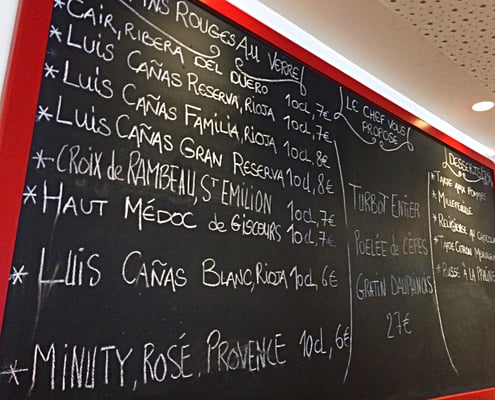 Vins Rouges Au Verre
* Cair, Ribera del Duero 10cl, 7€
* Luis Cañas Reserva, Rioja 10cl, 7€
* Luis Cañas Familia, Rioja 10cl, 8€
* Luis Cañas Gran Reserva 10cl, 8€
* Croix de Rambeau, St Emilion 10cl, 7€
* Haut Médoc de Giscours 10cl, 7€
* Luis Cañas Blanc, Rioja 10cl, 6€
* Minuty, Rosé, Provence 10cl, 6€
Le Chef Vous
Propose
Turbot Entier
Poelée de Cèpes
Gratin Dauphinois
27€
Desserts
* Tarte aux Pommes
* Millefeuille
* Religieuse au Chocolat
* Tarte Citron Meringuée
* Russe à la Praline